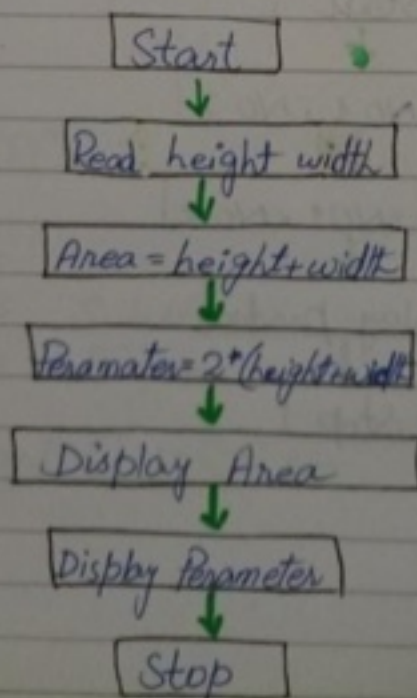 Start
Read height width
Area = height+width
Peramater= 2*(height+width
Display Area
Display Perameter
Stop